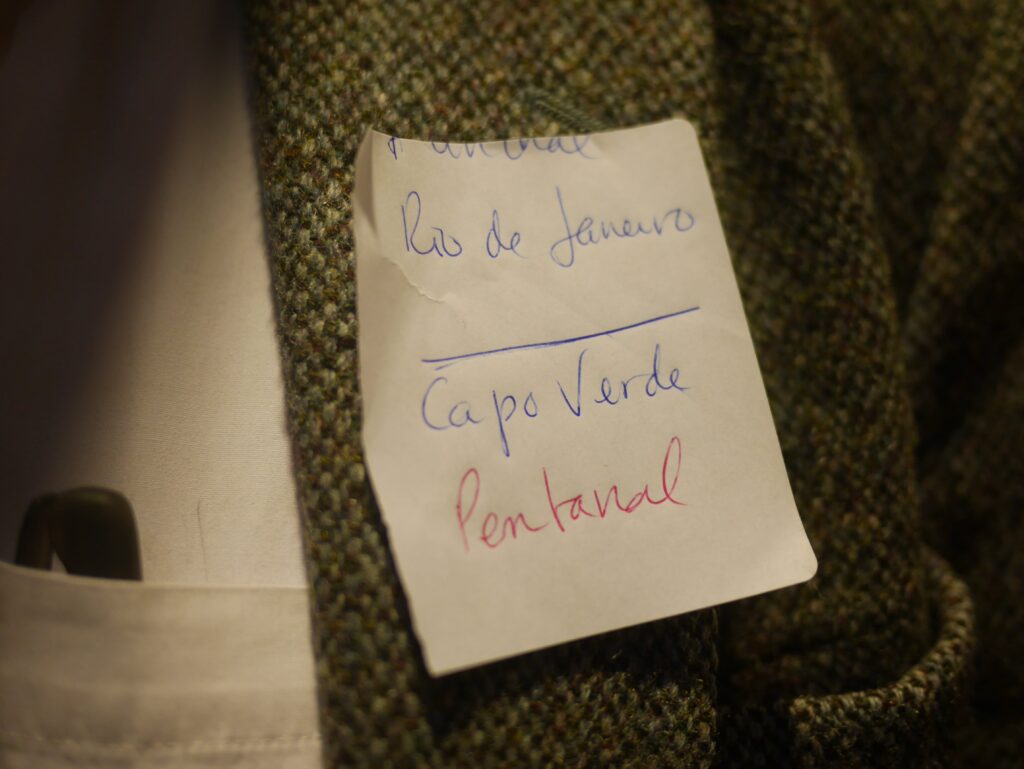 Rio de Janeiro
Capo Verde
Pentanal